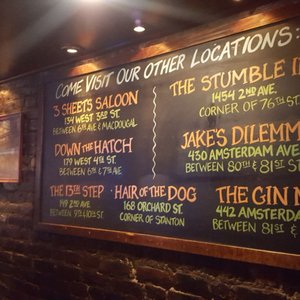 COME VISIT OUR OTHER LOCATIONS:
3 SHEETS SALOON
134 WEST 3RD ST.
BETWEEN 6TH AVE & MACDOUGAL
DOWN THE HATCH
179 WEST 4TH ST.
BETWEEN 6TH & 7TH AVE
THE 13TH STEP
149 2ND AVE.
BETWEEN 9TH & 10TH ST
HAIR OF THE DOG
168 ORCHARD ST.
CORNER OF STANTON
THE STUMBLE I
1454 2ND AVE.
CORNER OF 76TH ST
JAKE'S DILEMM
430 AMSTERDAM AVE
BETWEEN 80TH & 81ST S
THE GIN M
442 AMSTERDA
BETWEEN 81ST &